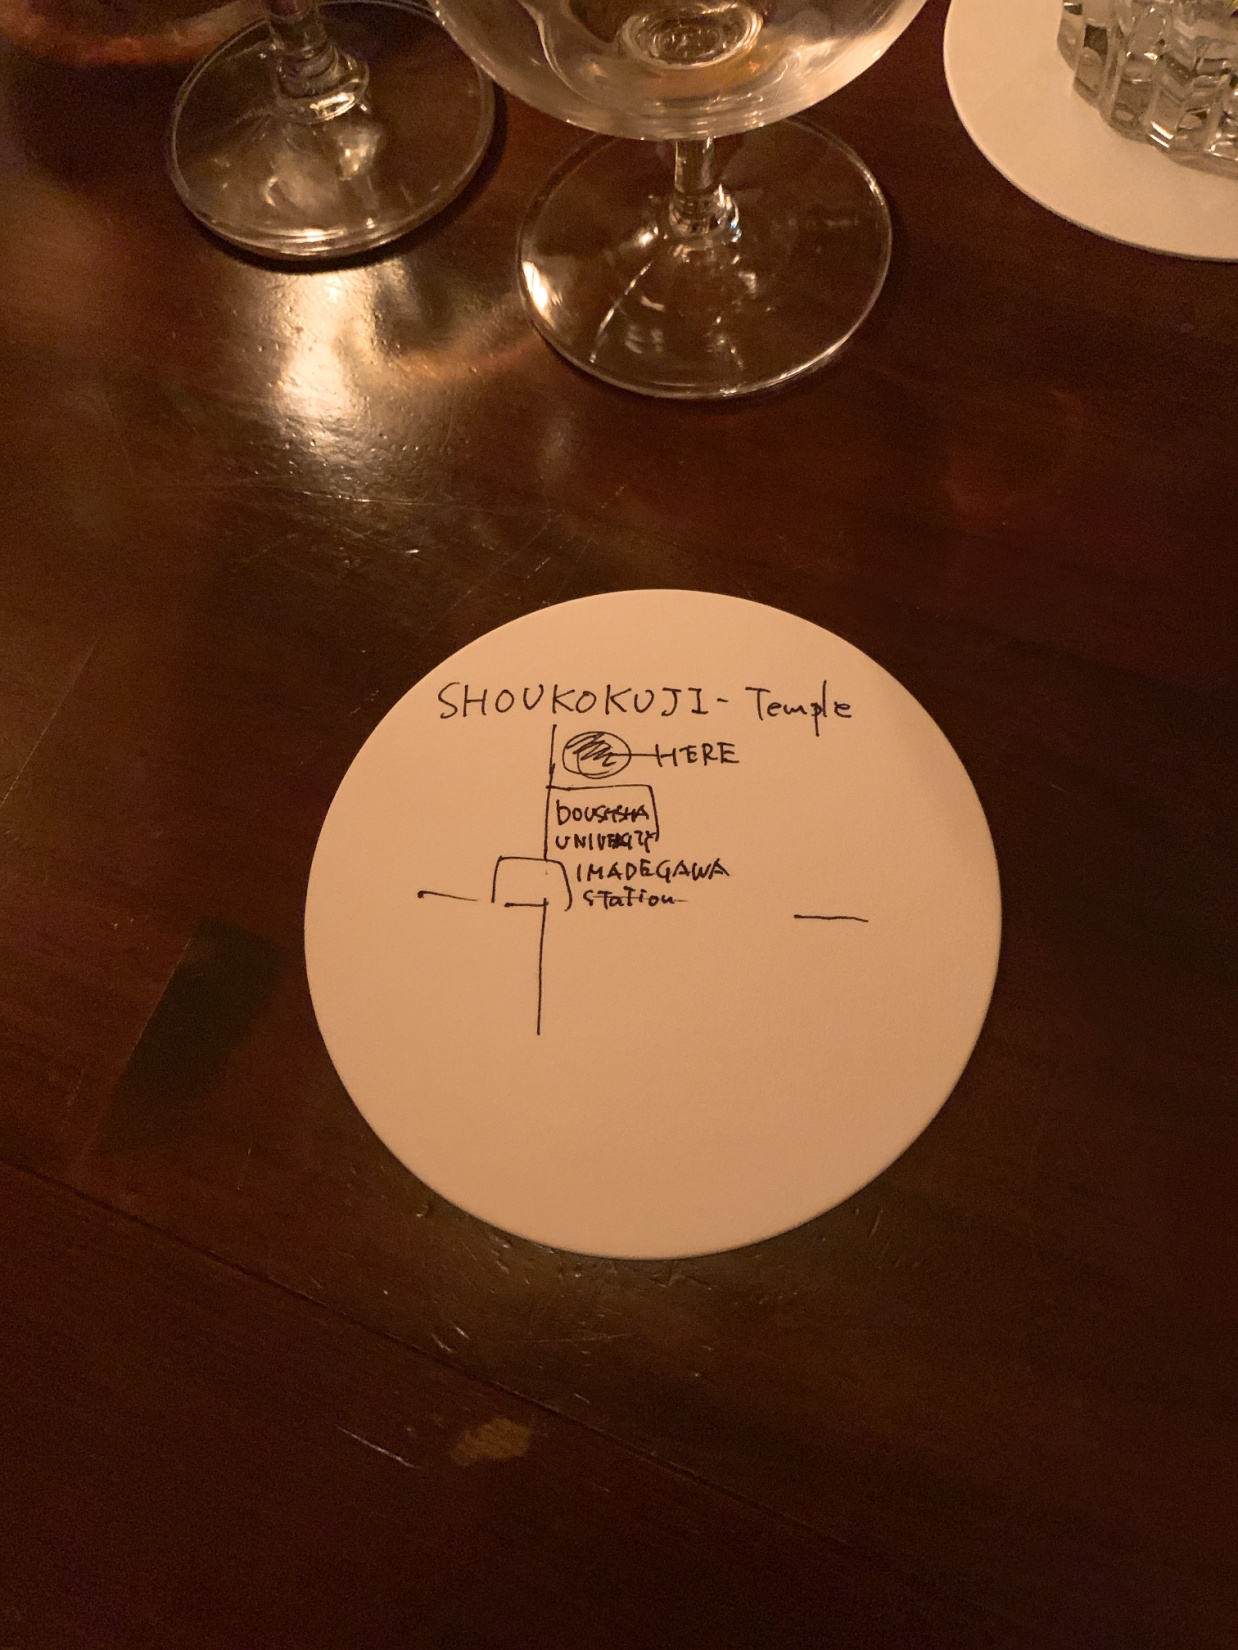 SHOUKOKUJI - Temple
HERE
DOUSHISHA
UNIVERSITY
IMADEGAWA
Station